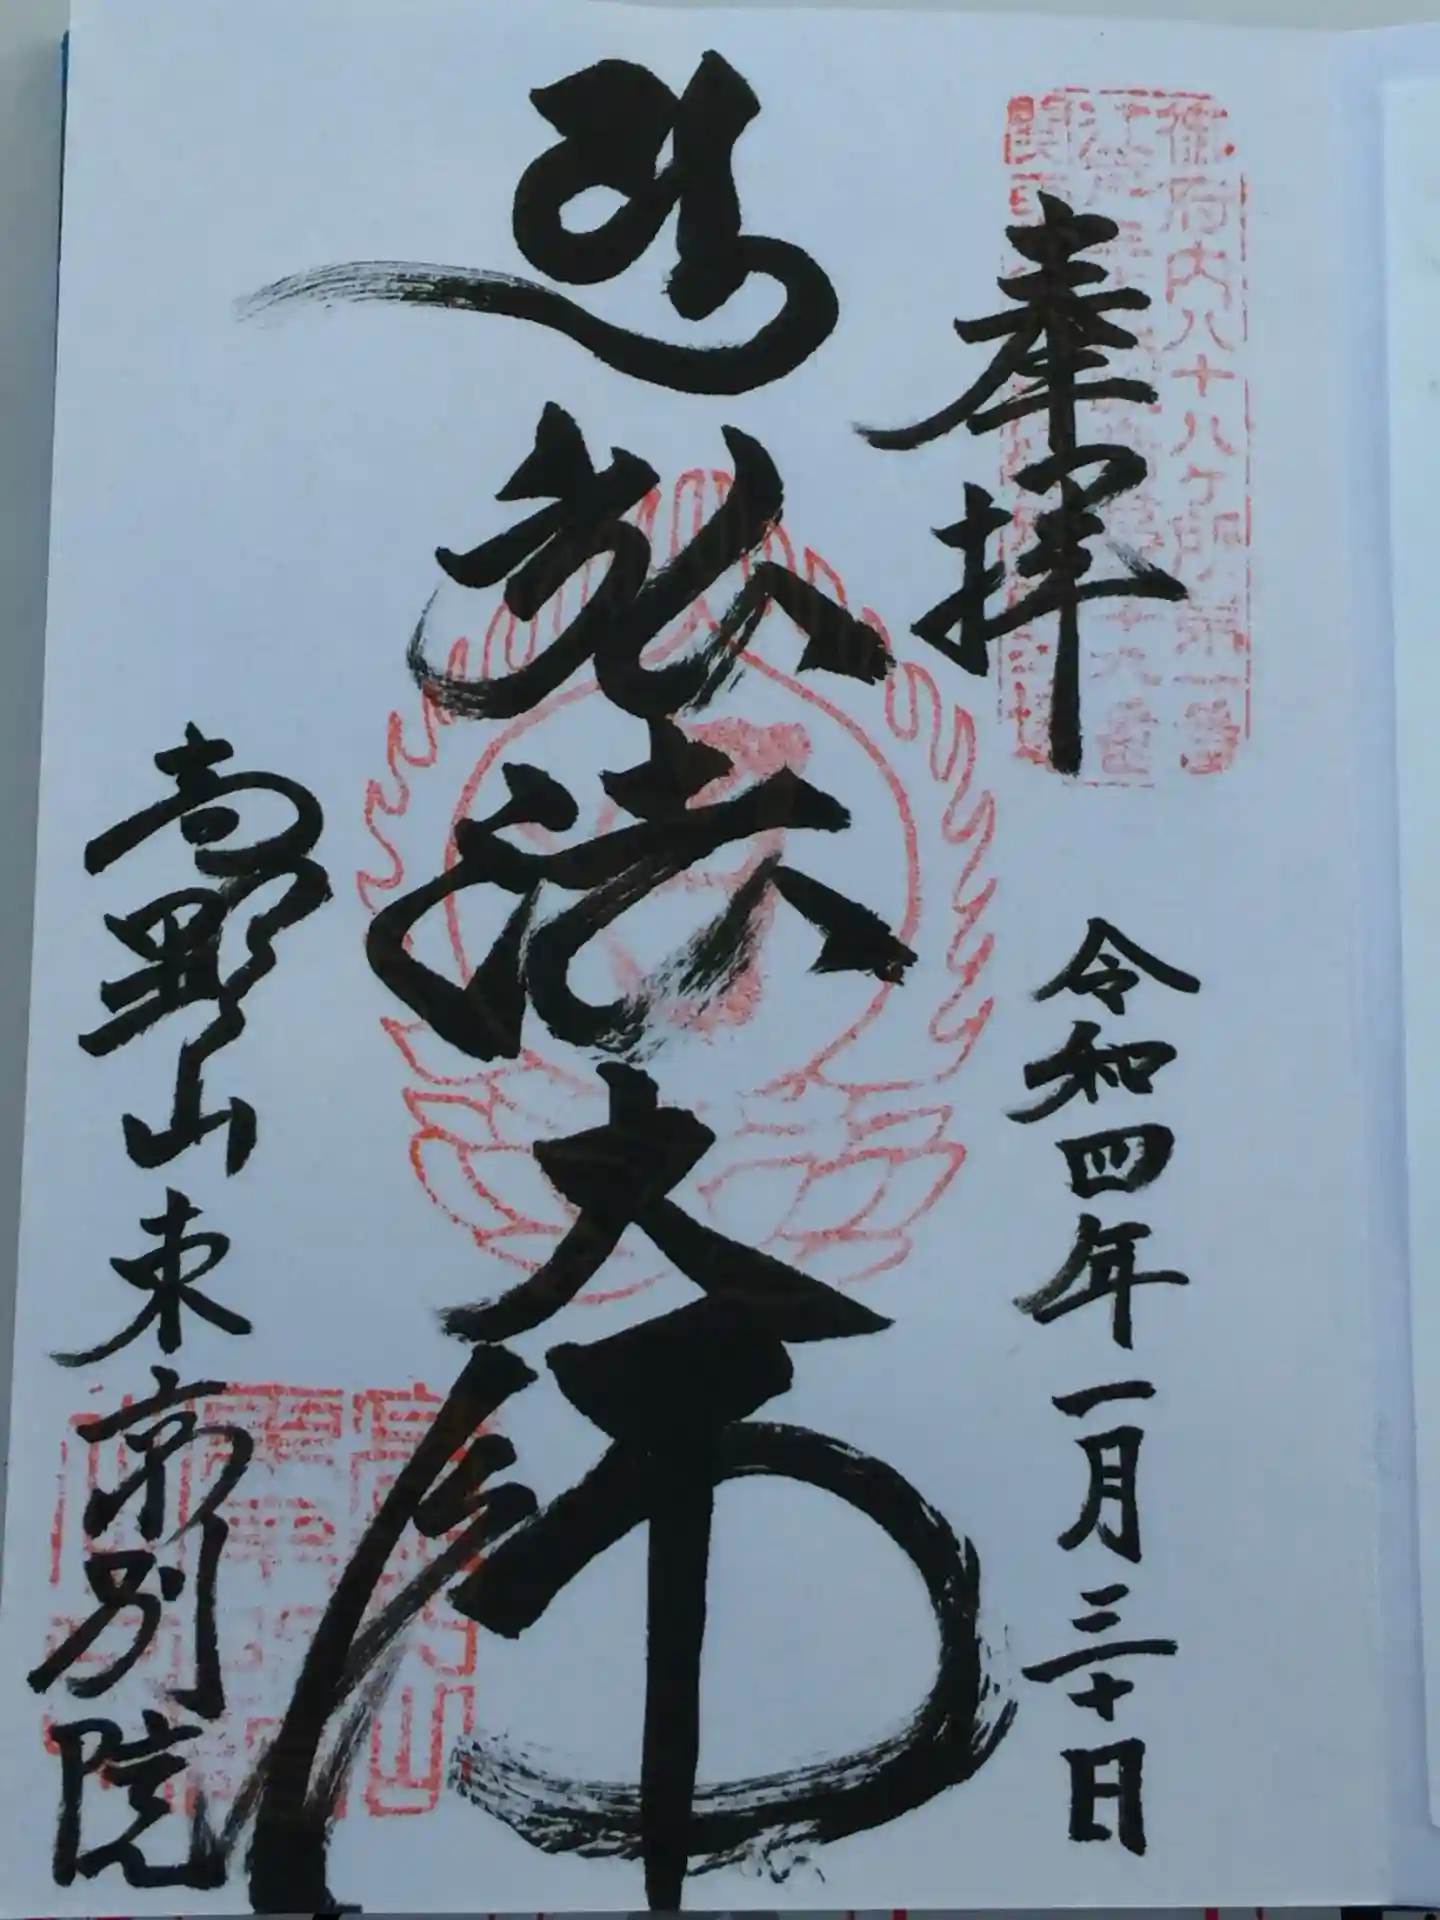 奉拝
令和四年一月三十日
御府内八十八ヶ所第一番
弘法大師
高野山東京別院